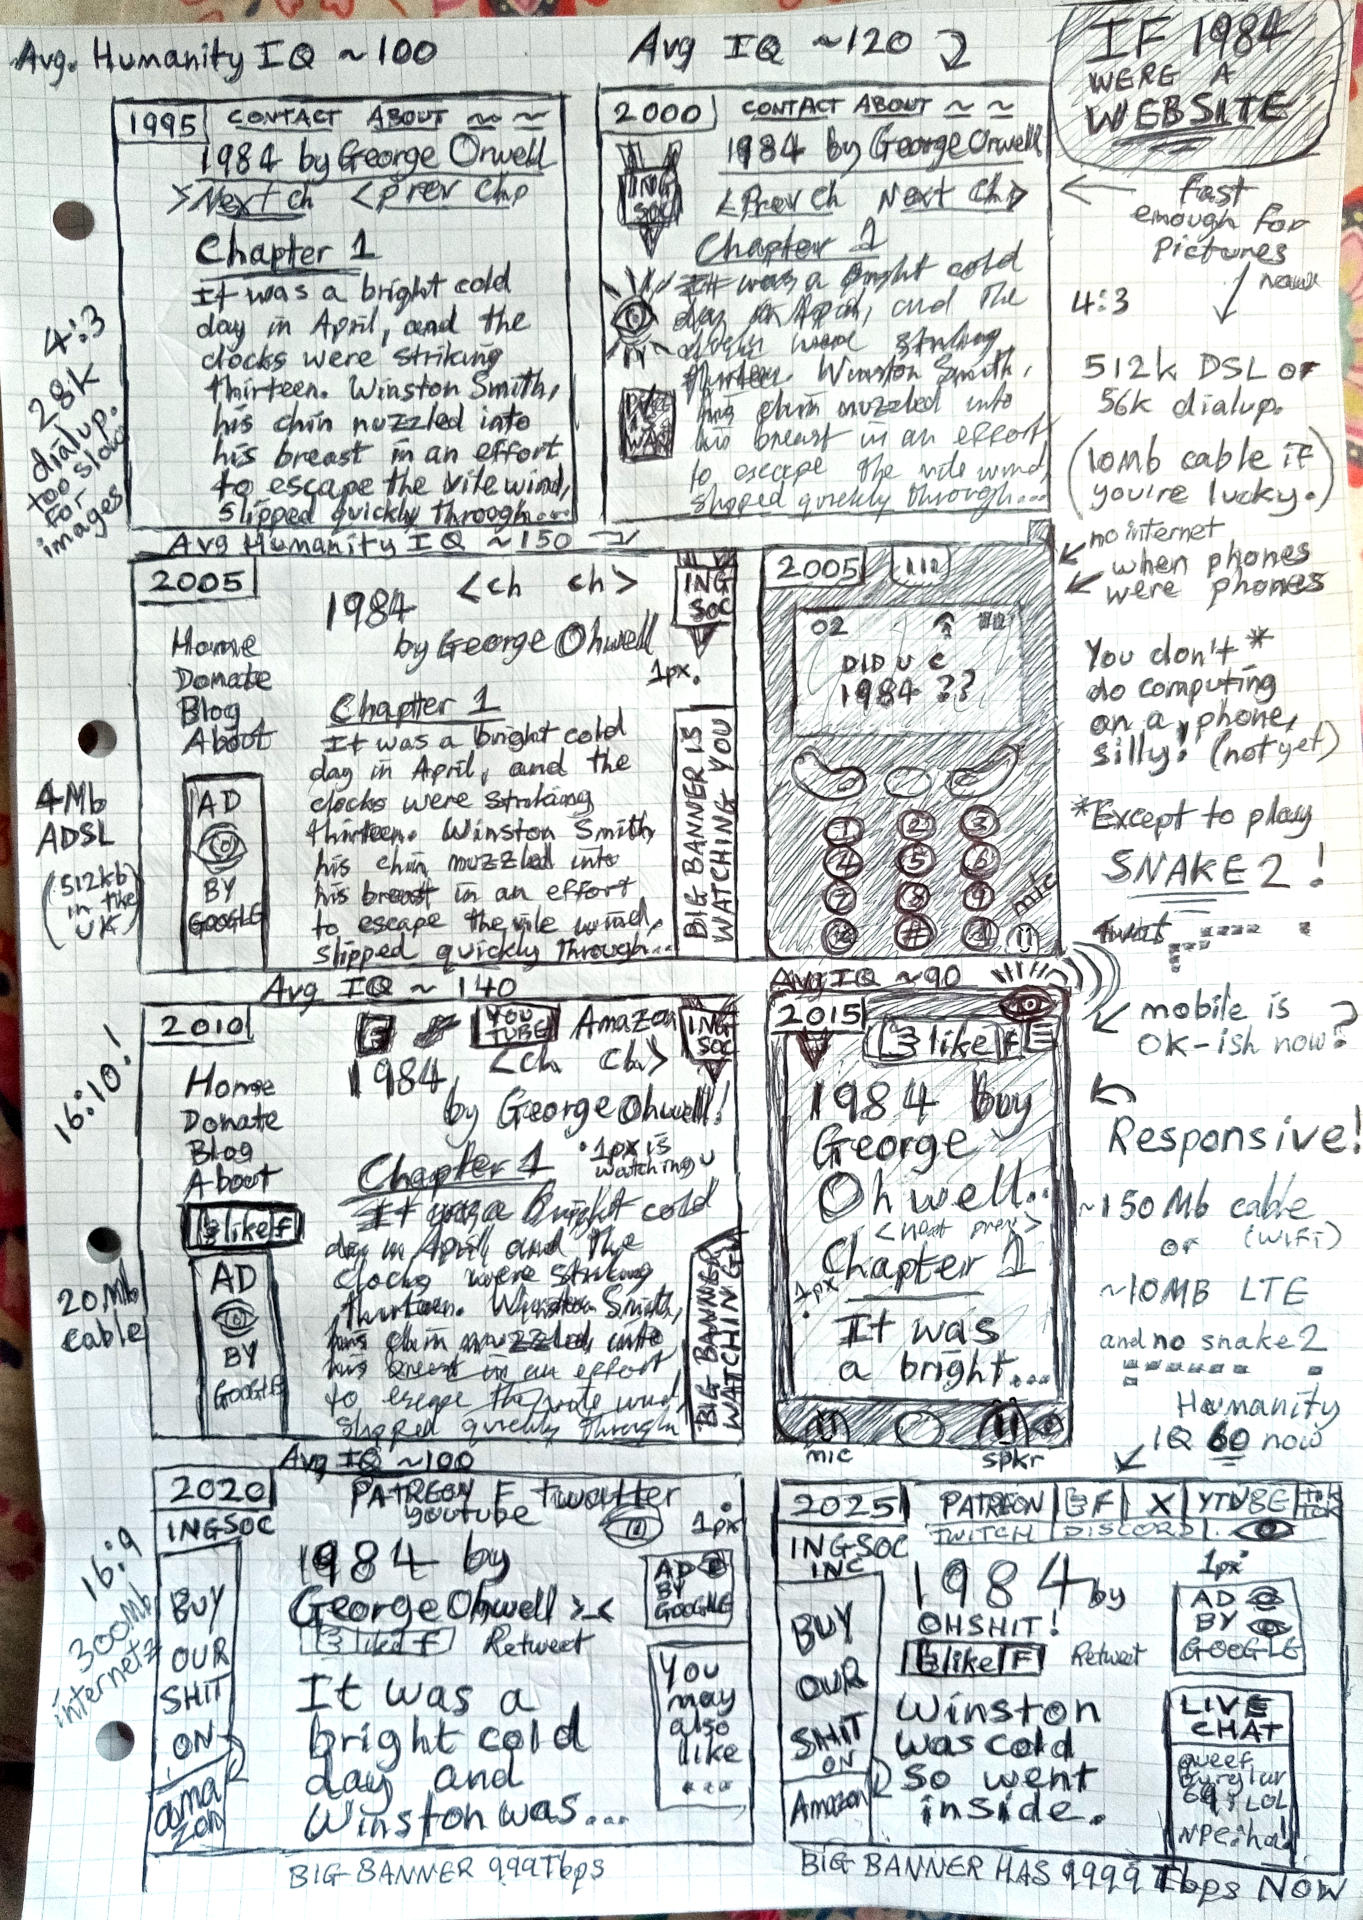 Avg. Humanity IQ ~100
Avg IQ ~120
IF 1984
WERE A
WEBSITE
1995 CONTACT ABOUT
1984 by George Orwell
>Next ch <prev chp
Chapter 1
It was a bright cold
day in April, and the
clocks were striking
thirteen. Winston Smith,
his chin nuzzled into
his breast in an effort
to escape the vile wind,
slipped quickly through...
4:3
28k
dialup.
too slow
for
images
2000 CONTACT ABOUT
1984 by George Orwell
<Prev ch Next ch>
ING
SOC
Chapter 1
It was a bright cold
day in April, and the
clocks were striking
thirteen. Winston Smith,
his chin nuzzled into
his breast in an effort
to escape the vile wind,
slipped quickly through...
fast
enough for
pictures
4:3
512k DSL or
56k dialup.
(10Mb cable if
you're lucky.)
Avg Humanity IQ ~150
2005
<ch ch>
1984
by George Ohwell
ING
SOC
1px.
Home
Donate
Blog
About
AD
BY
GOOGLE
Chapter 1
It was a bright cold
day in April, and the
clocks were striking
thirteen. Winston Smith,
his chin nuzzled into
his breast in an effort
to escape the vile wind,
slipped quickly through...
BIG BANNER IS
WATCHING YOU
4Mb
ADSL
(512kb
in the
UK)
2005
02
DID U C
1984 ??
1 2 3
4 5 6
7 8 9
mic
no internet
when phones
were phones
You don't *
do computing
on a phone,
silly! (not yet)
*Except to play
SNAKE 2!
Avg IQ ~ 140
2010
YOU
TUBE
Amazon
ING
SOC
1984, <ch ch>
by George Ohwell!
1px is
watching u
Home
Donate
Blog
About
like f
AD
BY
GOOGLE
Chapter 1
It was a bright cold
day in April, and the
clocks were striking
thirteen. Winston Smith,
his chin nuzzled into
his breast in an effort
to escape the vile wind,
slipped quickly through
BIG BANNER
WATCHING U
16:10!
20Mb
cable
Avg IQ ~90
2015
like f
1984 buy
George
Ohwell..
<next prev>
Chapter 1
1px
It was
a bright...
mic
spkr
mobile is
OK-ish now?
Responsive!
~150Mb cable
or (wifi)
~10MB LTE
and no snake 2
Humanity
IQ 60 now
Avg IQ ~100
2020
PATREON F twatter
youtube
INGSOC
1px
1984 by
George Ohwell >.<
like f Retweet
AD
BY
GOOGLE
BUY
OUR
SHIT
ON
ama
zon
It was a
bright cold
day and
Winston was...
You
may
also
like
...
BIG BANNER 999Tbps
16:9
300Mb
internetz
2025
PATREON F X YTUBE TikTok
TWITCH DISCORD
INGSOC
INC
1px
1984 by
OHSHIT!
like F Retweet
AD
BY
GOOGLE
BUY
OUR
SHIT
ON
Amazon
Winston
was cold
so went
inside.
LIVE
CHAT
BIG BANNER HAS 9999 Tbps NOW